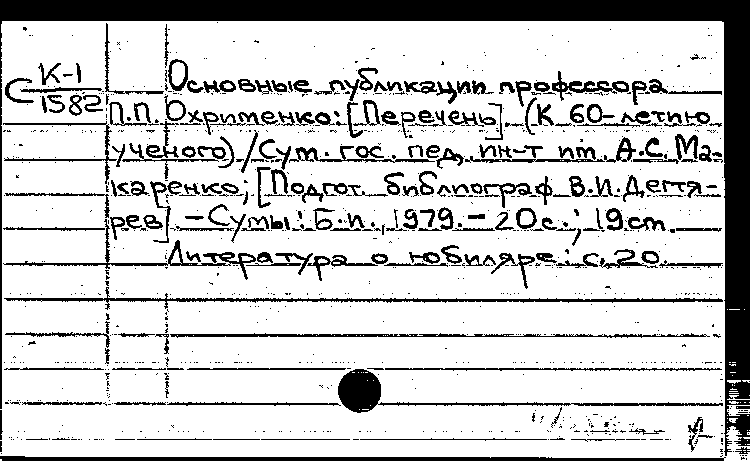 С К-1
1582
Основные публикации профессора
П.П. Охрименко: [Перечень]. (К 60-летию
ученого) / Сум. гос. пед. ин-т им. А.С. Ма-
каренко; [Подгот. библиограф В.И. Дегтя-
рев]. - Сумы: Б.и., 1979. - 20 с.; 19 см.
Литература о юбиляре: с. 20.